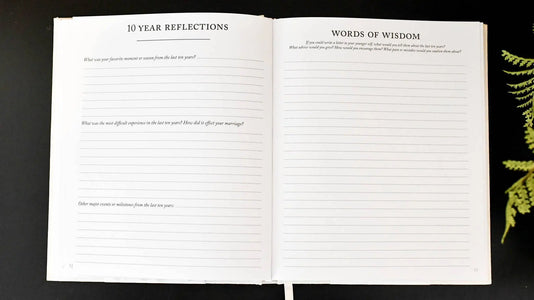 10 YEAR REFLECTIONS
What was your favorite moment or season from the last ten years?
What was the most difficult experience in the last ten years? How did it affect your marriage?
Other major events or milestones from the last ten years:
WORDS OF WISDOM
If you could write a letter to your younger self, what would you tell them about the last ten years?
What advice would you give? How would you encourage them? What pain or mistakes would you caution them about?